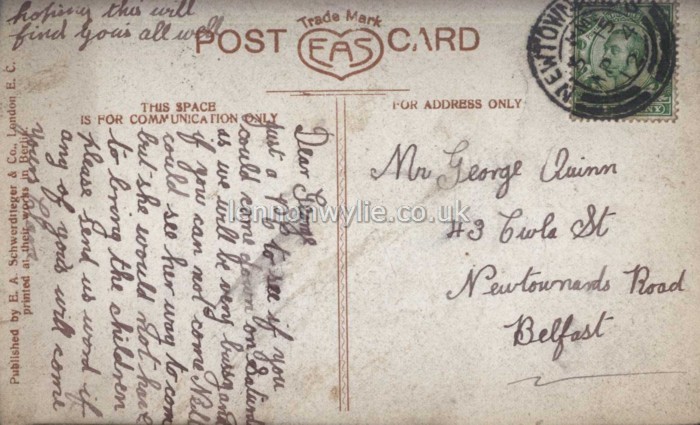 hoping this will
find yous all well
Trade Mark
POST EAS CARD
NEWTOWN
12
THIS SPACE
IS FOR COMMUNICATION ONLY
FOR ADDRESS ONLY
Dear George
just a P.C. to see if you
could come down on Saturd
as we will be very bussy and
if you can not come Nell
could see her way to come
but she would not have
to bring the children
please send us word if
any of yous will come
yours
Mr George Quinn
43 Cwla St
Newtownards Road
Belfast
Published by E. A. Schwerdtfeger & Co., London E. C.
printed at their works in Berlin
lennonwylie.co.uk